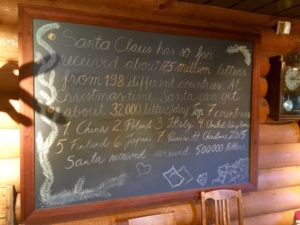 Santa Claus has so far
received about 17,5 million letters
from 198 different countries. At
Christmastime Santa can get
about 32000 letters/day. Top 7 countries
1 China 2 Poland 3 Italy 4 United Kingdom
5 Finland 6 Japan 7 Russia. At Christmas 2015
Santa received around 500000 letters.